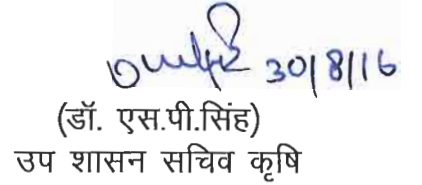 30/8/16
(डॉ. एस.पी.सिंह)
उप शासन सचिव कृषि